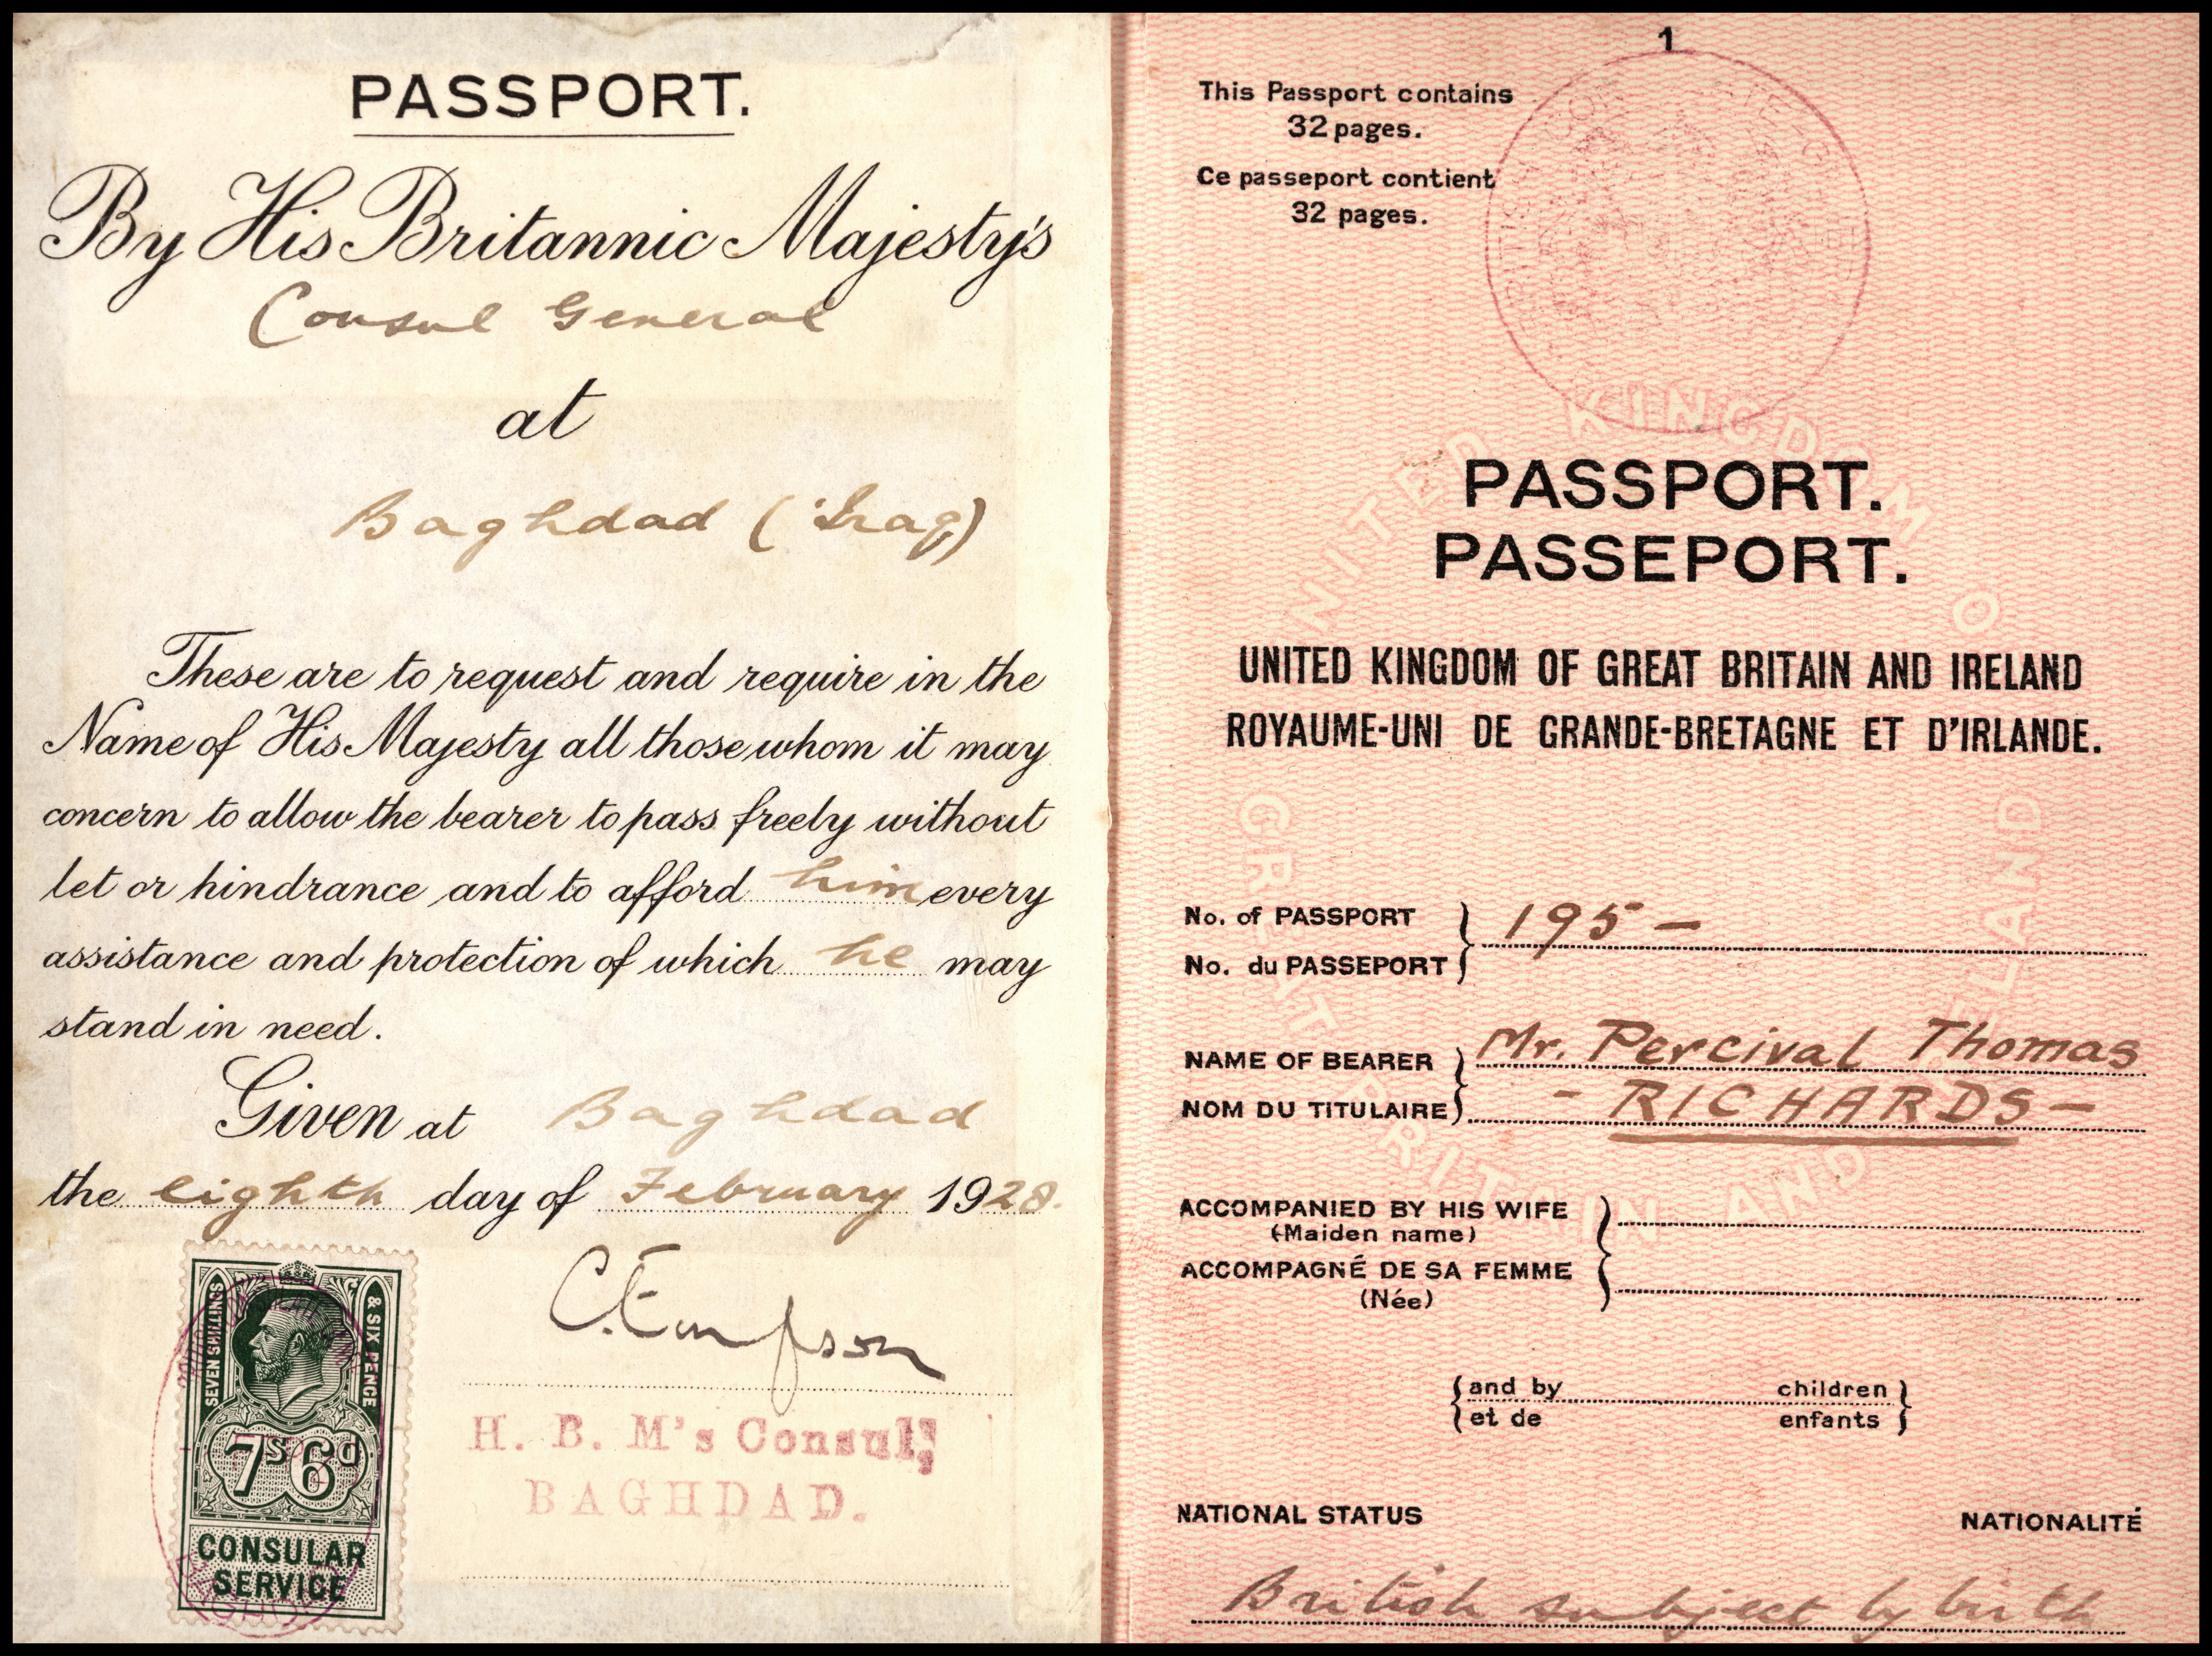 PASSPORT.
By His Britannic Majesty's
Consul General
at
Baghdad ('Iraq)
These are to request and require in the
Name of His Majesty all those whom it may
concern to allow the bearer to pass freely without
let or hindrance and to afford him every
assistance and protection of which he may
stand in need.
Given at Baghdad
the eighth day of February 1928.
SEVEN SHILLINGS
& SIX PENCE
7s 6d
CONSULAR
SERVICE
H. B. M's Consul,
BAGHDAD.
1
This Passport contains
32 pages.
Ce passeport contient
32 pages.
UNITED KINGDOM OF
GREAT BRITAIN AND IRELAND
PASSPORT.
PASSEPORT.
UNITED KINGDOM OF GREAT BRITAIN AND IRELAND
ROYAUME-UNI DE GRANDE-BRETAGNE ET D'IRLANDE.
No. of PASSPORT 195 -
No. du PASSEPORT
NAME OF BEARER Mr. Percival Thomas
NOM DU TITULAIRE - RICHARDS -
ACCOMPANIED BY HIS WIFE
(Maiden name)
ACCOMPAGNÉ DE SA FEMME
(Née)
and by children
et de enfants
NATIONAL STATUS NATIONALITÉ
British subject by birth